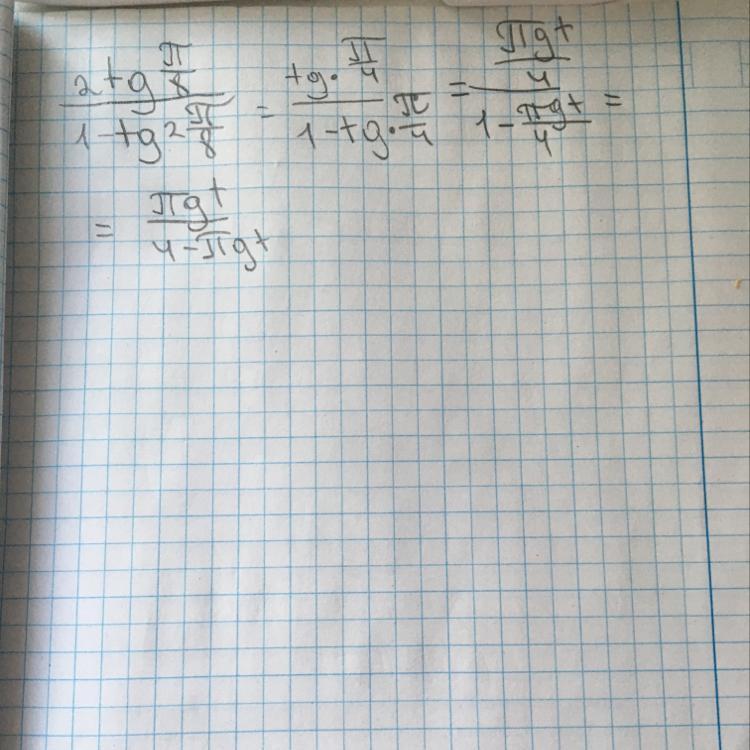 \frac{2tg\frac{π}{8}}{1-tg2\frac{π}{8}} = \frac{tg·\frac{π}{4}}{1-tg·\frac{π}{4}} = \frac{\frac{πgt}{4}}{1-\frac{πgt}{4}} =
= \frac{πgt}{4-πgt}